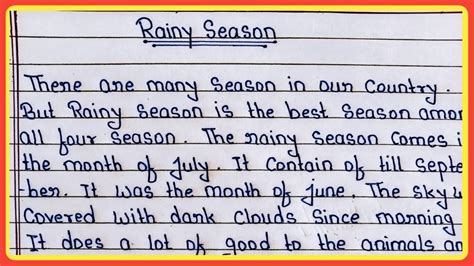 Rainy Season
There are many season in our country.
But Rainy season is the best season amon
all four season. The rainy season comes i
the month of July. It contain of till Septe
-ber. It was the month of june. The sky w
Covered with dark clouds since morning
It does a lot of good to the animals an